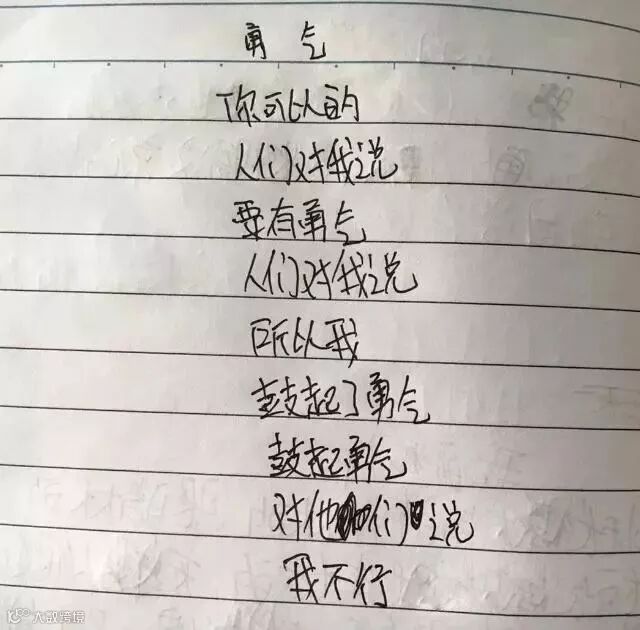 勇气
你可以的
人们对我说
要有勇气
人们对我说
所以我
鼓起了勇气
鼓起勇气
对他们说
我不行
大数跨境